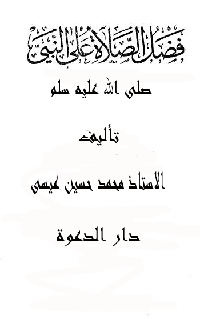 فضل الصلاة على النبي
صلى الله عليه سلم
تأليف
الاستاذ محمد حسين عيسى
دار الدعوة